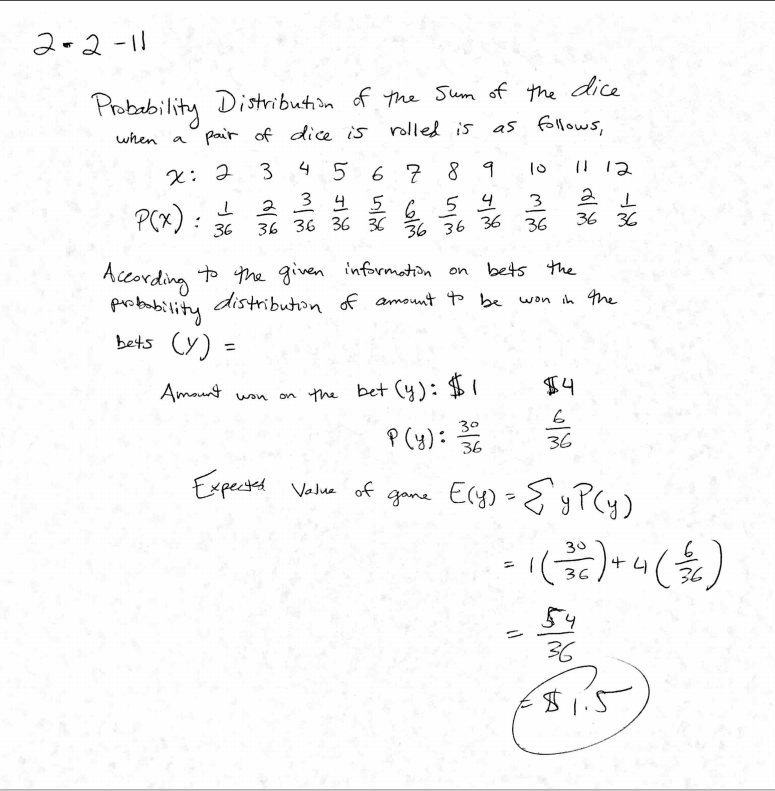 2-2-11
Probability Distribution of the sum of the dice
when a pair of dice is rolled is as follows,
x: 2 3 4 5 6 7 8 9 10 11 12
P(x): 1/36 2/36 3/36 4/36 5/36 6/36 5/36 4/36 3/36 2/36 1/36
According to the given information on bets the
probability distribution of amount to be won in the
bets (y) =
Amount won on the bet (y): $1 $4
P(y): 30/36 6/36
Expected Value of game E(y) = ∑ y P(y)
= 1(30/36) + 4(6/36)
= 54/36
= $1.5